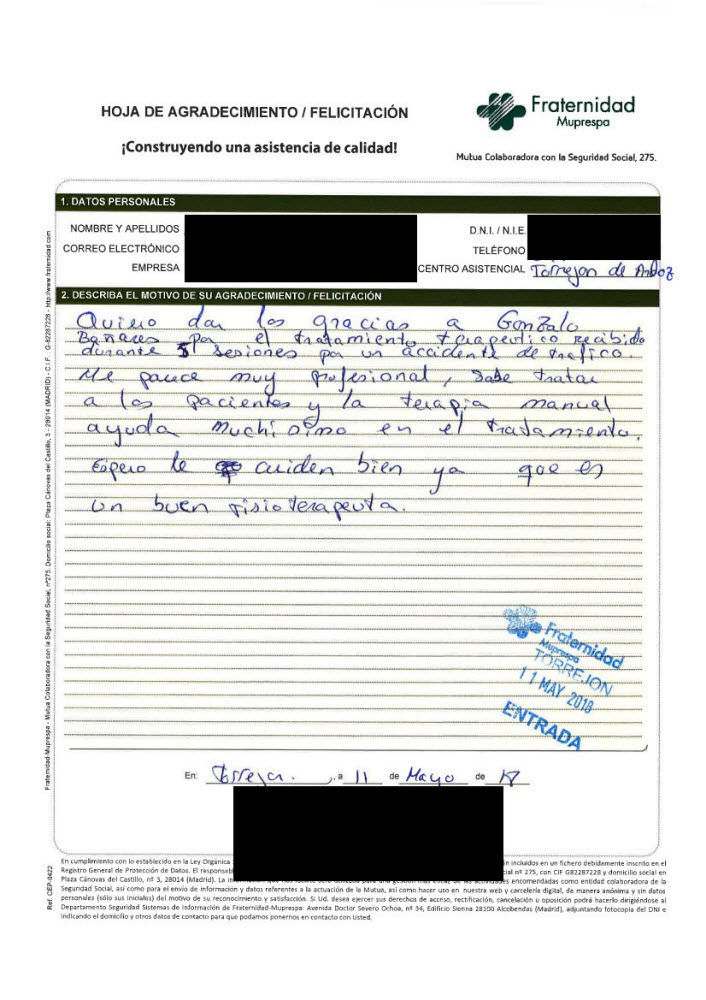 HOJA DE AGRADECIMIENTO / FELICITACIÓN
¡Construyendo una asistencia de calidad!
Fraternidad
Muprespa
Mutua Colaboradora con la Seguridad Social, 275.
1. DATOS PERSONALES
NOMBRE Y APELLIDOS
D.N.I. / N.I.E.
CORREO ELECTRÓNICO
TELÉFONO
EMPRESA
CENTRO ASISTENCIAL Torrejon de Ardoz
2. DESCRIBA EL MOTIVO DE SU AGRADECIMIENTO / FELICITACIÓN
Quiero dar las gracias a Gonzalo
Bañares por el tratamiento terapeutico recibido
durante 5 sesiones por un accidente de trafico.
Me parece muy profesional, sabe tratar
a los pacientes y la terapia manual
ayuda muchisimo en el tratamiento.
Espero le cuiden bien ya que es
un buen fisioterapeuta.
Fraternidad
Muprespa
TORREJON
11 MAY 2018
ENTRADA
En: Torrejon, a 11 de Mayo de 18
En cumplimiento con lo establecido en la Ley Orgánica
n incluidos en un fichero debidamente inscrito en el
Registro General de Protección de Datos. El responsabl
cial nº 275, con CIF G82287228 y domicilio social en
Plaza Cánovas del Castillo, nº 3, 28014 (Madrid). La in
encomendadas como entidad colaboradora de la
Seguridad Social, así como para el envío de información y datos referentes a la actuación de la Mutua, así como hacer uso en nuestra web y cartelería digital, de manera anónima y sin datos
personales (sólo sus iniciales) del motivo de su reconocimiento y satisfacción. Si Ud. desea ejercer sus derechos de acceso, rectificación, cancelación u oposición podrá hacerlo dirigiéndose al
Departamento Seguridad Sistemas de Información de Fraternidad-Muprespa: Avenida Doctor Severo Ochoa, nº 34, Edificio Sienna 28100 Alcobendas (Madrid), adjuntando fotocopia del DNI e
indicando el domicilio y otros datos de contacto para que podamos ponernos en contacto con Usted.
Fraternidad-Muprespa - Mutua Colaboradora con la Seguridad Social, nº275. Domicilio social: Plaza Cánovas del Castillo, 3 - 28014 (MADRID) - C.I.F. G-82287228 - http://www.fraternidad.com
Ref. CEP-0422